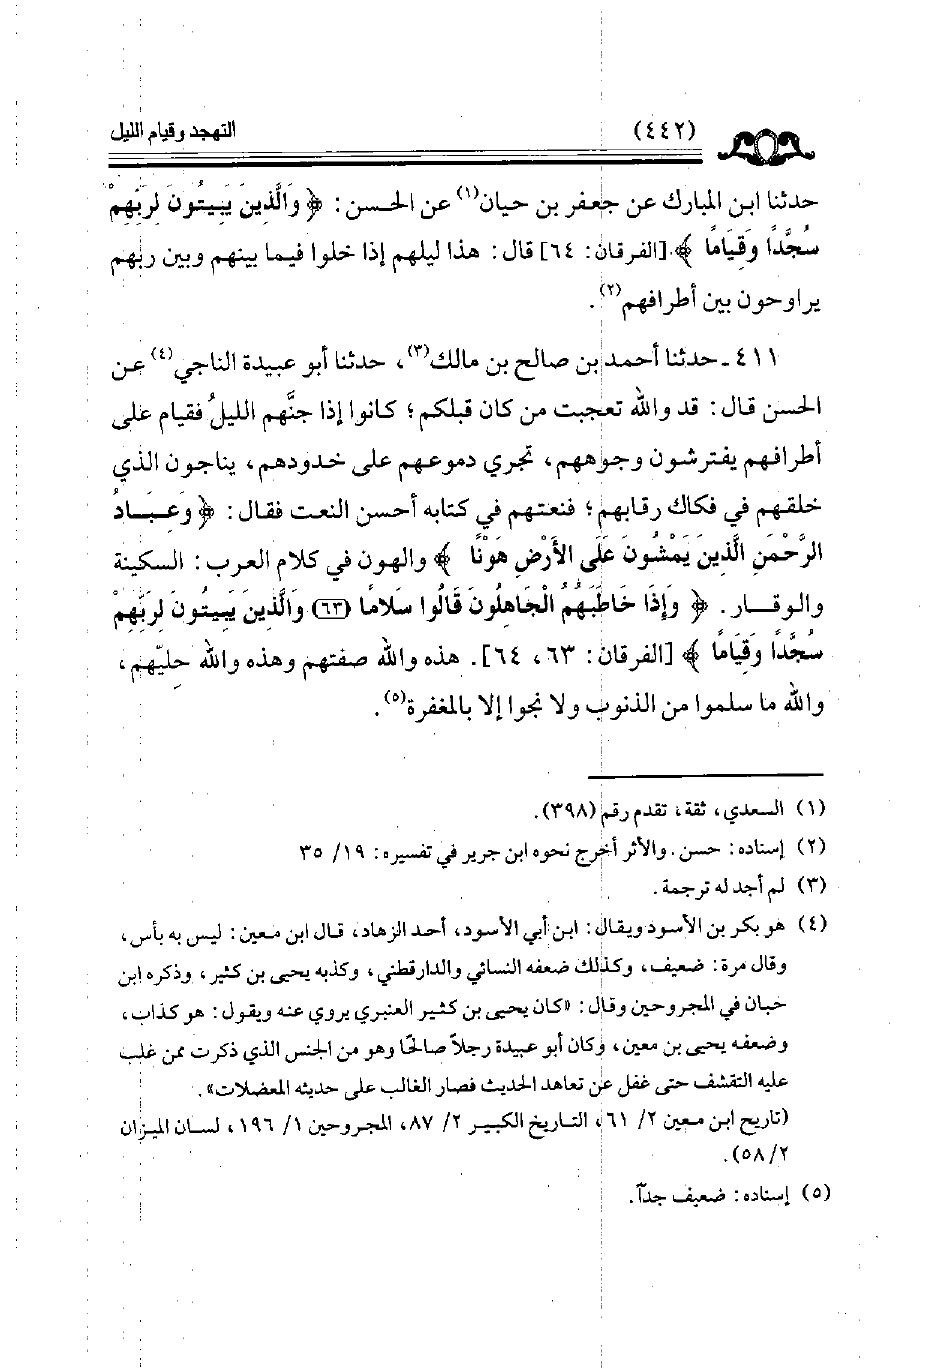 (٤٤٢) التهجد وقيام الليل
حدثنا ابن المبارك عن جعفر بن حيان(١) عن الحسن: ﴿ وَالَّذِينَ يَبِيتُونَ لِرَبِّهِمْ
سُجَّدًا وَقِيَامًا ﴾ [الفرقان: ٦٤] قال: هذا ليلهم إذا خلوا فيما بينهم وبين ربهم
يراوحون بين أطرافهم(٢).
٤١١ ـ حدثنا أحمد بن صالح بن مالك(٣)، حدثنا أبو عبيدة الناجي(٤) عن
الحسن قال: قد والله تعجبت من كان قبلكم؛ كانوا إذا جنَّهم الليلُ فقيام على
أطرافهم يفترشون وجوههم، تجري دموعهم على خدودهم، يناجون الذي
خلقهم في فكاك رقابهم؛ فنعتهم في كتابه أحسن النعت فقال: ﴿ وَعِبَادُ
الرَّحْمَنِ الَّذِينَ يَمْشُونَ عَلَى الأَرْضِ هَوْنًا ﴾ والهون في كلام العرب: السكينة
والوقار. ﴿ وَإِذَا خَاطَبَهُمُ الْجَاهِلُونَ قَالُوا سَلامًا (٦٣) وَالَّذِينَ يَبِيتُونَ لِرَبِّهِمْ
سُجَّدًا وَقِيَامًا ﴾ [الفرقان: ٦٣، ٦٤]. هذه والله صفتهم وهذه والله حليّهم،
والله ما سلموا من الذنوب ولا نجوا إلا بالمغفرة(٥).
(١) السعدي، ثقة، تقدم رقم (٣٩٨).
(٢) إسناده: حسن. والأثر أخرج نحوه ابن جرير في تفسيره: ١٩/ ٣٥
(٣) لم أجد له ترجمة.
(٤) هو بكر بن الأسود ويقال: ابن أبي الأسود، أحد الزهاد، قال ابن معين: ليس به بأس،
وقال مرة: ضعيف، وكذلك ضعفه النسائي والدارقطني، وكذبه يحيى بن كثير، وذكره ابن
حبان في المجروحين وقال: «كان يحيى بن كثير العنبري يروي عنه ويقول: هو كذاب،
وضعفه يحيى بن معين، وكان أبو عبيدة رجلاً صالحًا وهو من الجنس الذي ذكرت ممن غلب
عليه التقشف حتى غفل عن تعاهد الحديث فصار الغالب على حديثه المعضلات».
(تاريخ ابن معين ٢/ ٦١، التاريخ الكبير ٢/ ٨٧، المجروحين ١/ ١٩٦، لسان الميزان
٢/ ٥٨).
(٥) إسناده: ضعيف جدًا.